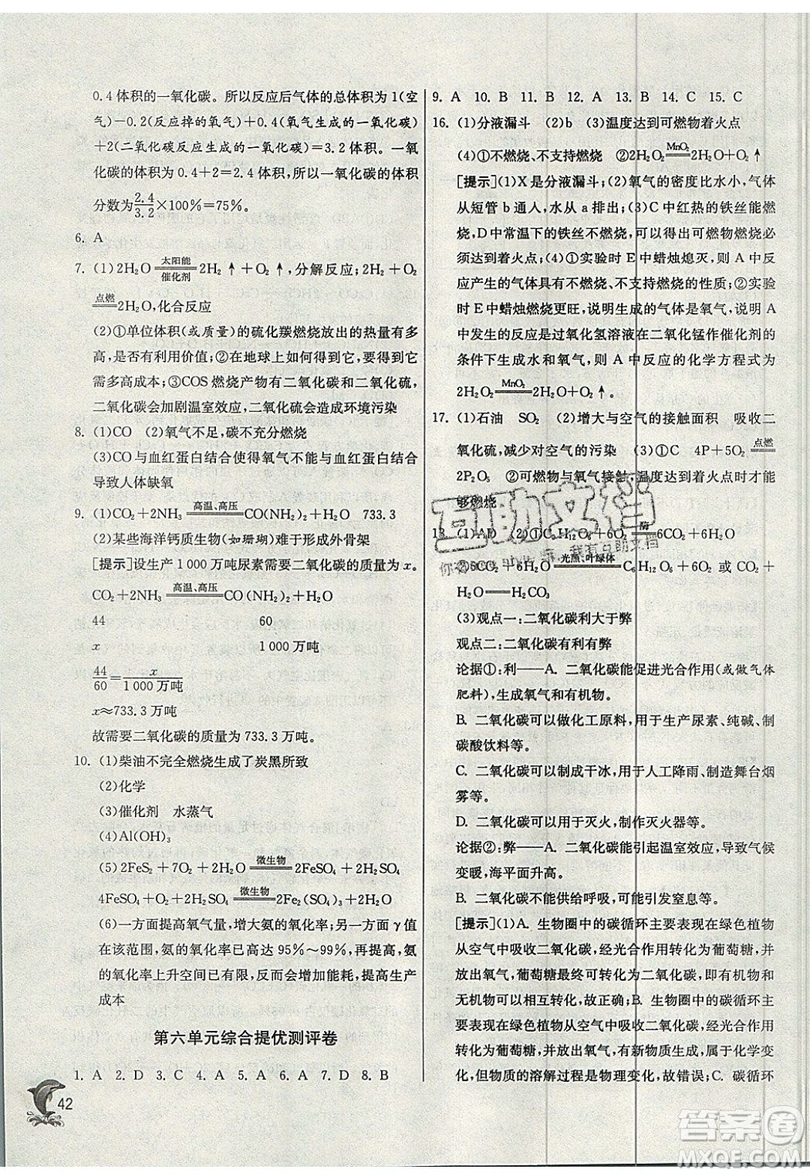 0.4体积的一氧化碳。所以反应后气体的总体积为1(空
气)-0.2(反应掉的氧气)+0.4(氧气生成的一氧化碳)
+2(二氧化碳反应生成的一氧化碳)=3.2体积。一氧
化碳的体积=0.4+2=2.4体积。所以一氧化碳的体积
分数为2.4/3.2×100%=75%。
6. A
7. (1)2H₂O 太阳能/催化剂 2H₂↑+O₂↑,分解反应; 2H₂+O₂
点燃 2H₂O,化合反应
(2)①单位体积(或质量)的硫化羰燃烧放出的热量有多
少,是否有利用价值;②在地球上如何大量获得,是否需
要太多成本;③COS燃烧产物有二氧化碳和二氧化硫,
二氧化碳会加剧温室效应,二氧化硫会造成环境污染
8. (1)CO (2)氧气不足,碳不充分燃烧
(3)CO与血红蛋白结合使得氧气不能与血红蛋白结合
导致人体缺氧
9. (1)CO₂+2NH₃ 高温、高压 CO(NH₂)₂+H₂O 733.3
(2)某些海洋钙质生物(如珊瑚)难于形成外骨架
[提示]设生产1000万吨尿素需要二氧化碳的质量为x。
CO₂+2NH₃ 高温、高压 CO(NH₂)₂+H₂O
44 60
x 1 000万吨
44/60=x/1 000万吨
x≈733.3万吨
故需要二氧化碳的质量为733.3万吨。
10. (1)柴油不完全燃烧生成了炭黑所致
(2)化学
(3)催化剂 水蒸气
(4)Al(OH)₃
(5) 2FeS₂+7O₂+2H₂O 微生物 2FeSO₄+2H₂SO₄
4FeSO₄+O₂+2H₂SO₄ 微生物 2Fe₂(SO₄)₃+2H₂O
(6)一方面提高氧气量,增大氨的氧化率;另一方面γ值
在该范围,氨的氧化率已高达95%~99%,再提高,氨
的氧化率上升空间已有限,反而会增加能耗,提高生产
成本
第六单元综合提优测评卷
1. A 2. D 3. C 4. A 5. D 6. A 7. D 8. B
42
9. A 10. B 11. B 12. A 13. C 14. A 15. C
16. (1)分液漏斗 (2)b (3)温度达到可燃物着火点
(4)①不燃烧、不支持燃烧 ②2H₂O₂ MnO₂ 2H₂O+O₂↑
[提示](1)X是分液漏斗;(2)氧气的密度比水小,气体
从短管b通入,水从a排出;(3)C中红热的铁丝能燃
烧,D中常温的铁丝不燃烧,说明可燃物燃烧的条件必
须达到着火点;(4)①实验时E中蜡烛熄灭,则A中反
应产生的气体具有不燃烧、不支持燃烧的性质;②实验
时E中蜡烛燃烧更旺,说明反应生成的气体是氧气,A
中发生的反应是过氧化氢溶液在二氧化锰作催化剂的
条件下生成水和氧气,则A中反应的化学方程式为
2H₂O₂ MnO₂ 2H₂O+O₂↑。
17. (1)石油 SO₂ (2)增大与空气的接触面积 吸收二
氧化硫,减少对空气的污染 (3)①C 4P+5O₂ 点燃
2P₂O₅ ②可燃物与氧气接触,温度达到着火点时才能
够燃烧
18. (1)AD (2)①C₆H₁₂O₆+6O₂ 酶 6CO₂+6H₂O
②6CO₂+6H₂O 光照、叶绿体 C₆H₁₂O₆+6O₂ 或CO₂+
H₂O═H₂CO₃
(3)观点一:二氧化碳利大于弊
观点二:二氧化碳有利有弊
论据①:利——A. 二氧化碳能促进光合作用(或做气体
肥料),生成氧气和有机物。
B. 二氧化碳可以做化工原料,用于生产尿素、纯碱、制
碳酸饮料等。
C. 二氧化碳可以制成干冰,用于人工降雨、制造舞台烟
雾等。
D. 二氧化碳可以用于灭火,制作灭火器等。
论据②:弊——A. 二氧化碳能引起温室效应,导致气候
变暖,海平面升高。
B. 二氧化碳不能供给呼吸,可能引发窒息等。
[提示](1)A. 生物圈中的碳循环主要表现在绿色植物
从空气中吸收二氧化碳,经光合作用转化为葡萄糖,并
放出氧气,葡萄糖可以转化为其他有机物,所以有机和
无机物可以相互转化,故正确;B. 生物圈中的碳循环主
要表现在绿色植物从空气中吸收二氧化碳,经光合作用
转化为葡萄糖,并放出氧气,所以碳、氧循环过程是化学
变化,而物质的溶解过程主要是物理变化,故错误;C. 碳循环
互助文档
我有互助文档
答案圈
MXQE.COM